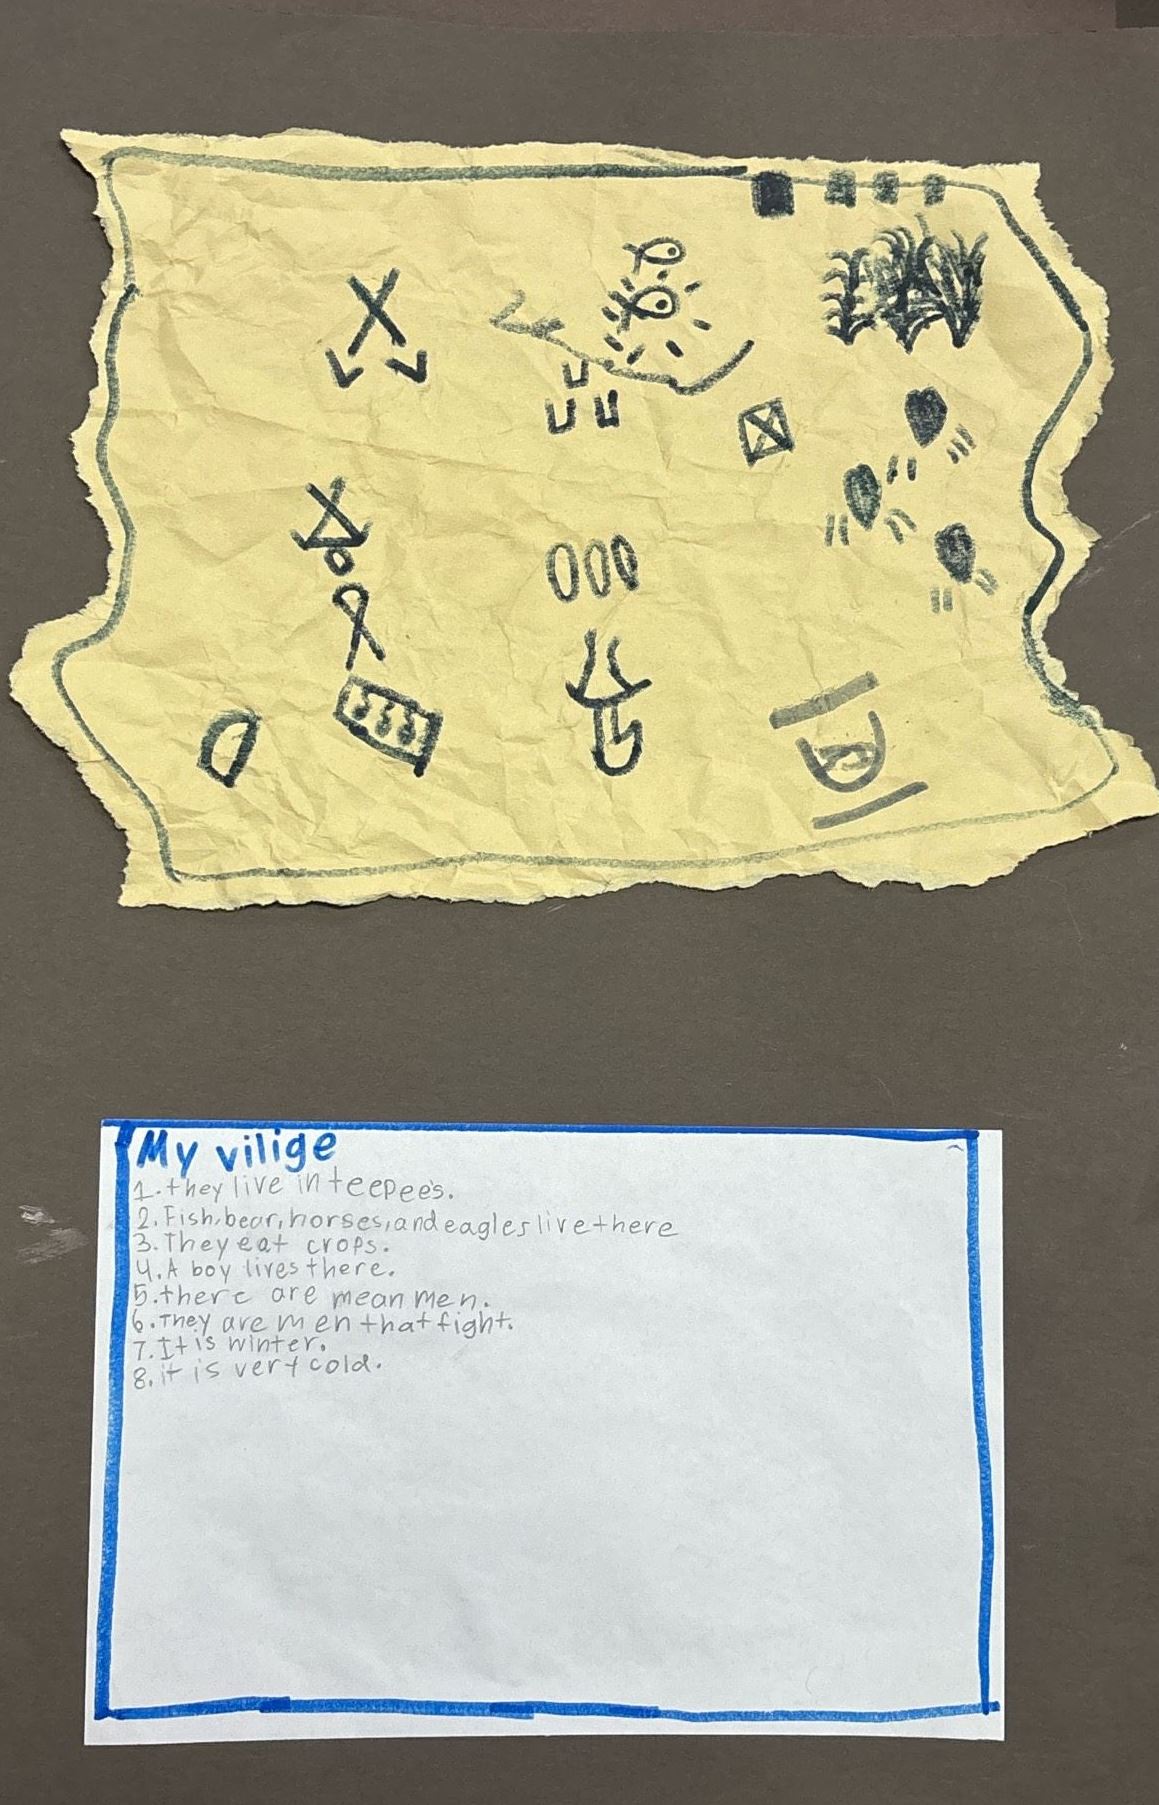 My vilige
1. they live in teepees.
2. Fish, bear, horses, and eagles live there
3. They eat crops.
4. A boy lives there.
5. there are mean men.
6. They are men that fight.
7. It is winter.
8. it is very cold.